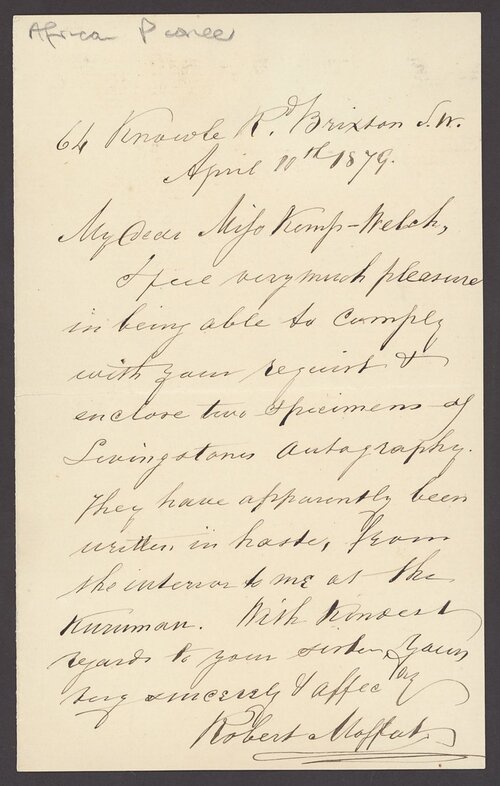 Africa Pioneer
64 Knowle Rd. Brixton S.W.
April 10th 1879.
My Dear Miss Kemp-Welch,
I feel very much pleasure
in being able to comply
with your request &
enclose two specimens of
Livingstones autography.
They have apparently been
written in haste, from
the interior to me at the
Kuruman. With kindest
regards to your sister, yours
very sincerely & affecly
Robert Moffat